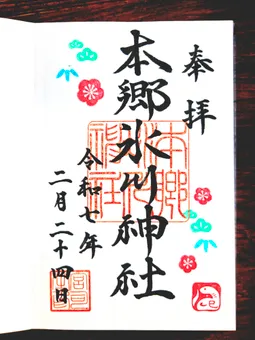 奉拝
本郷氷川神社
令和七年
二月二十四日